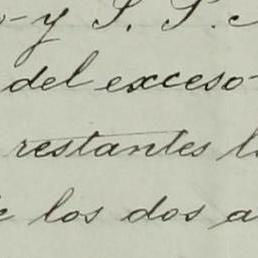 y S. S.
del exceso
restantes
los dos a